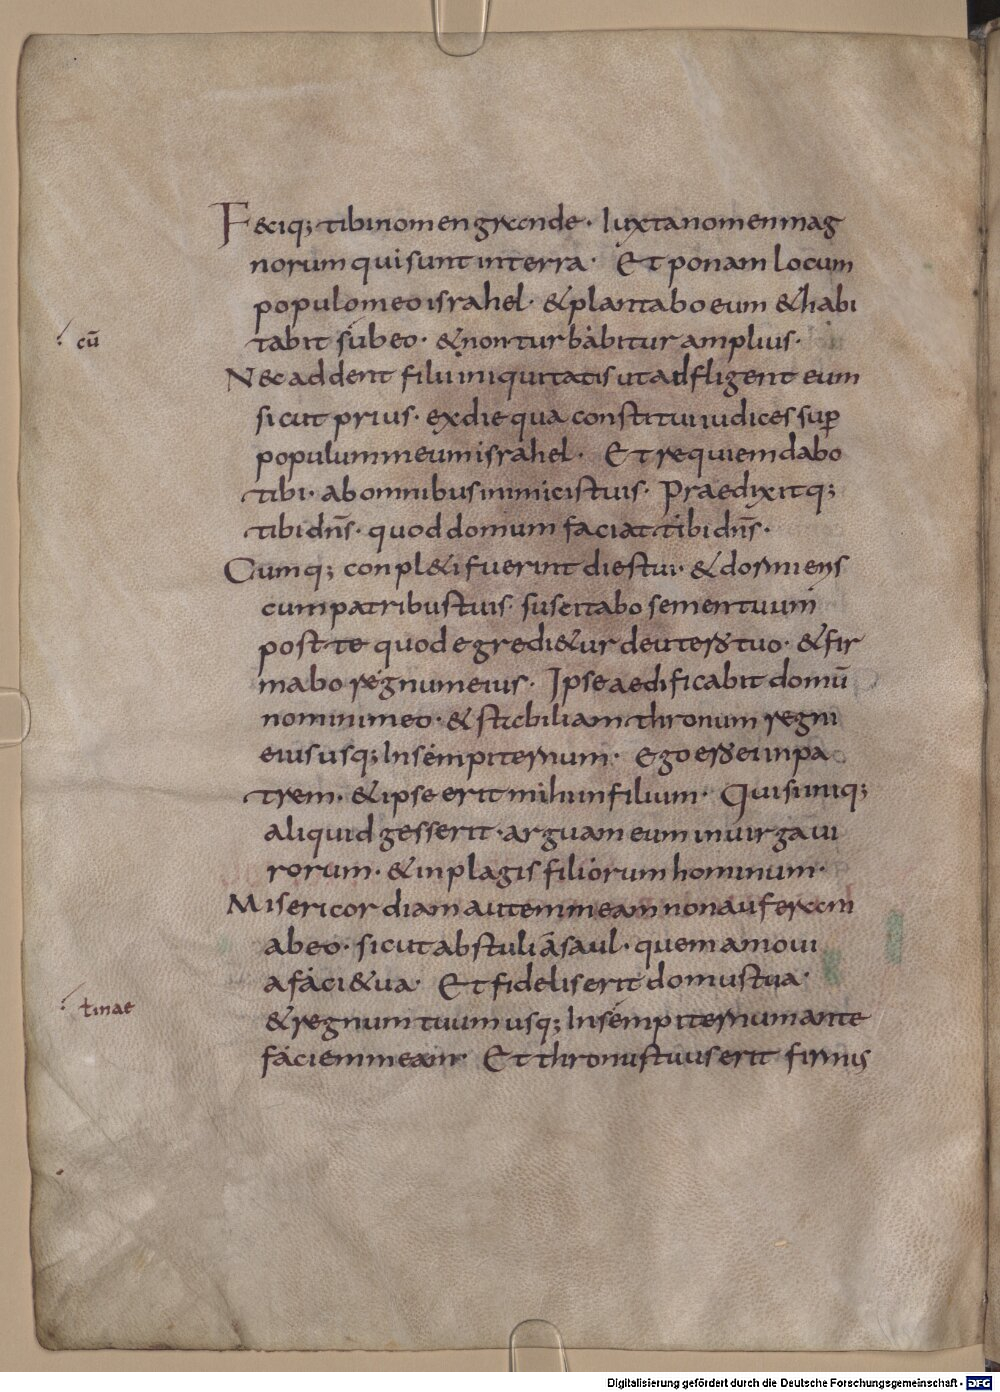 F&iq; tibi nomen grande· Iuxta nomen mag
norum qui sunt in terra· Et ponam locum
populo meo israhel· & plantabo eum & habi
cū
tabit sub eo· & non turbabitur amplius·
Nec addent filii iniquitatis ut adfligent eum
sicut prius· ex die qua constitui iudices sup̄
populum meum israhel· Et requiem dabo
tibi· ab omnibus inimicis tuis· Praedixitq;
tibi dn̄s· quod domum faciat tibi dn̄s·
Cumq; conpl&i fuerint dies tui· & dormiens
cum patribus tuis· suscitabo semen tuum
post te quod egredi&ur de utero tuo· & fir
mabo regnum eius· Ipse aedificabit domū
nomini meo· & stabiliam thronum regni
eius usq; In sempiternum· Ego ero ei in pa
trem· & ipse erit mihi in filium· Qui si iniq;
aliquid gesserit· arguam eum in uirga ui
rorum· & in plagis filiorum hominum·
Misericordiam autem meam non auferam
ab eo· sicut abstuli a saul· quem amoui
a faci& ua· Et fidelis erit domus tua·
tinae
& regnum tuum usq; In sempiternum ante
faciem meam· Et thronus tuus erit firmus
Digitalisierung gefördert durch die Deutsche Forschungsgemeinschaft - DFG